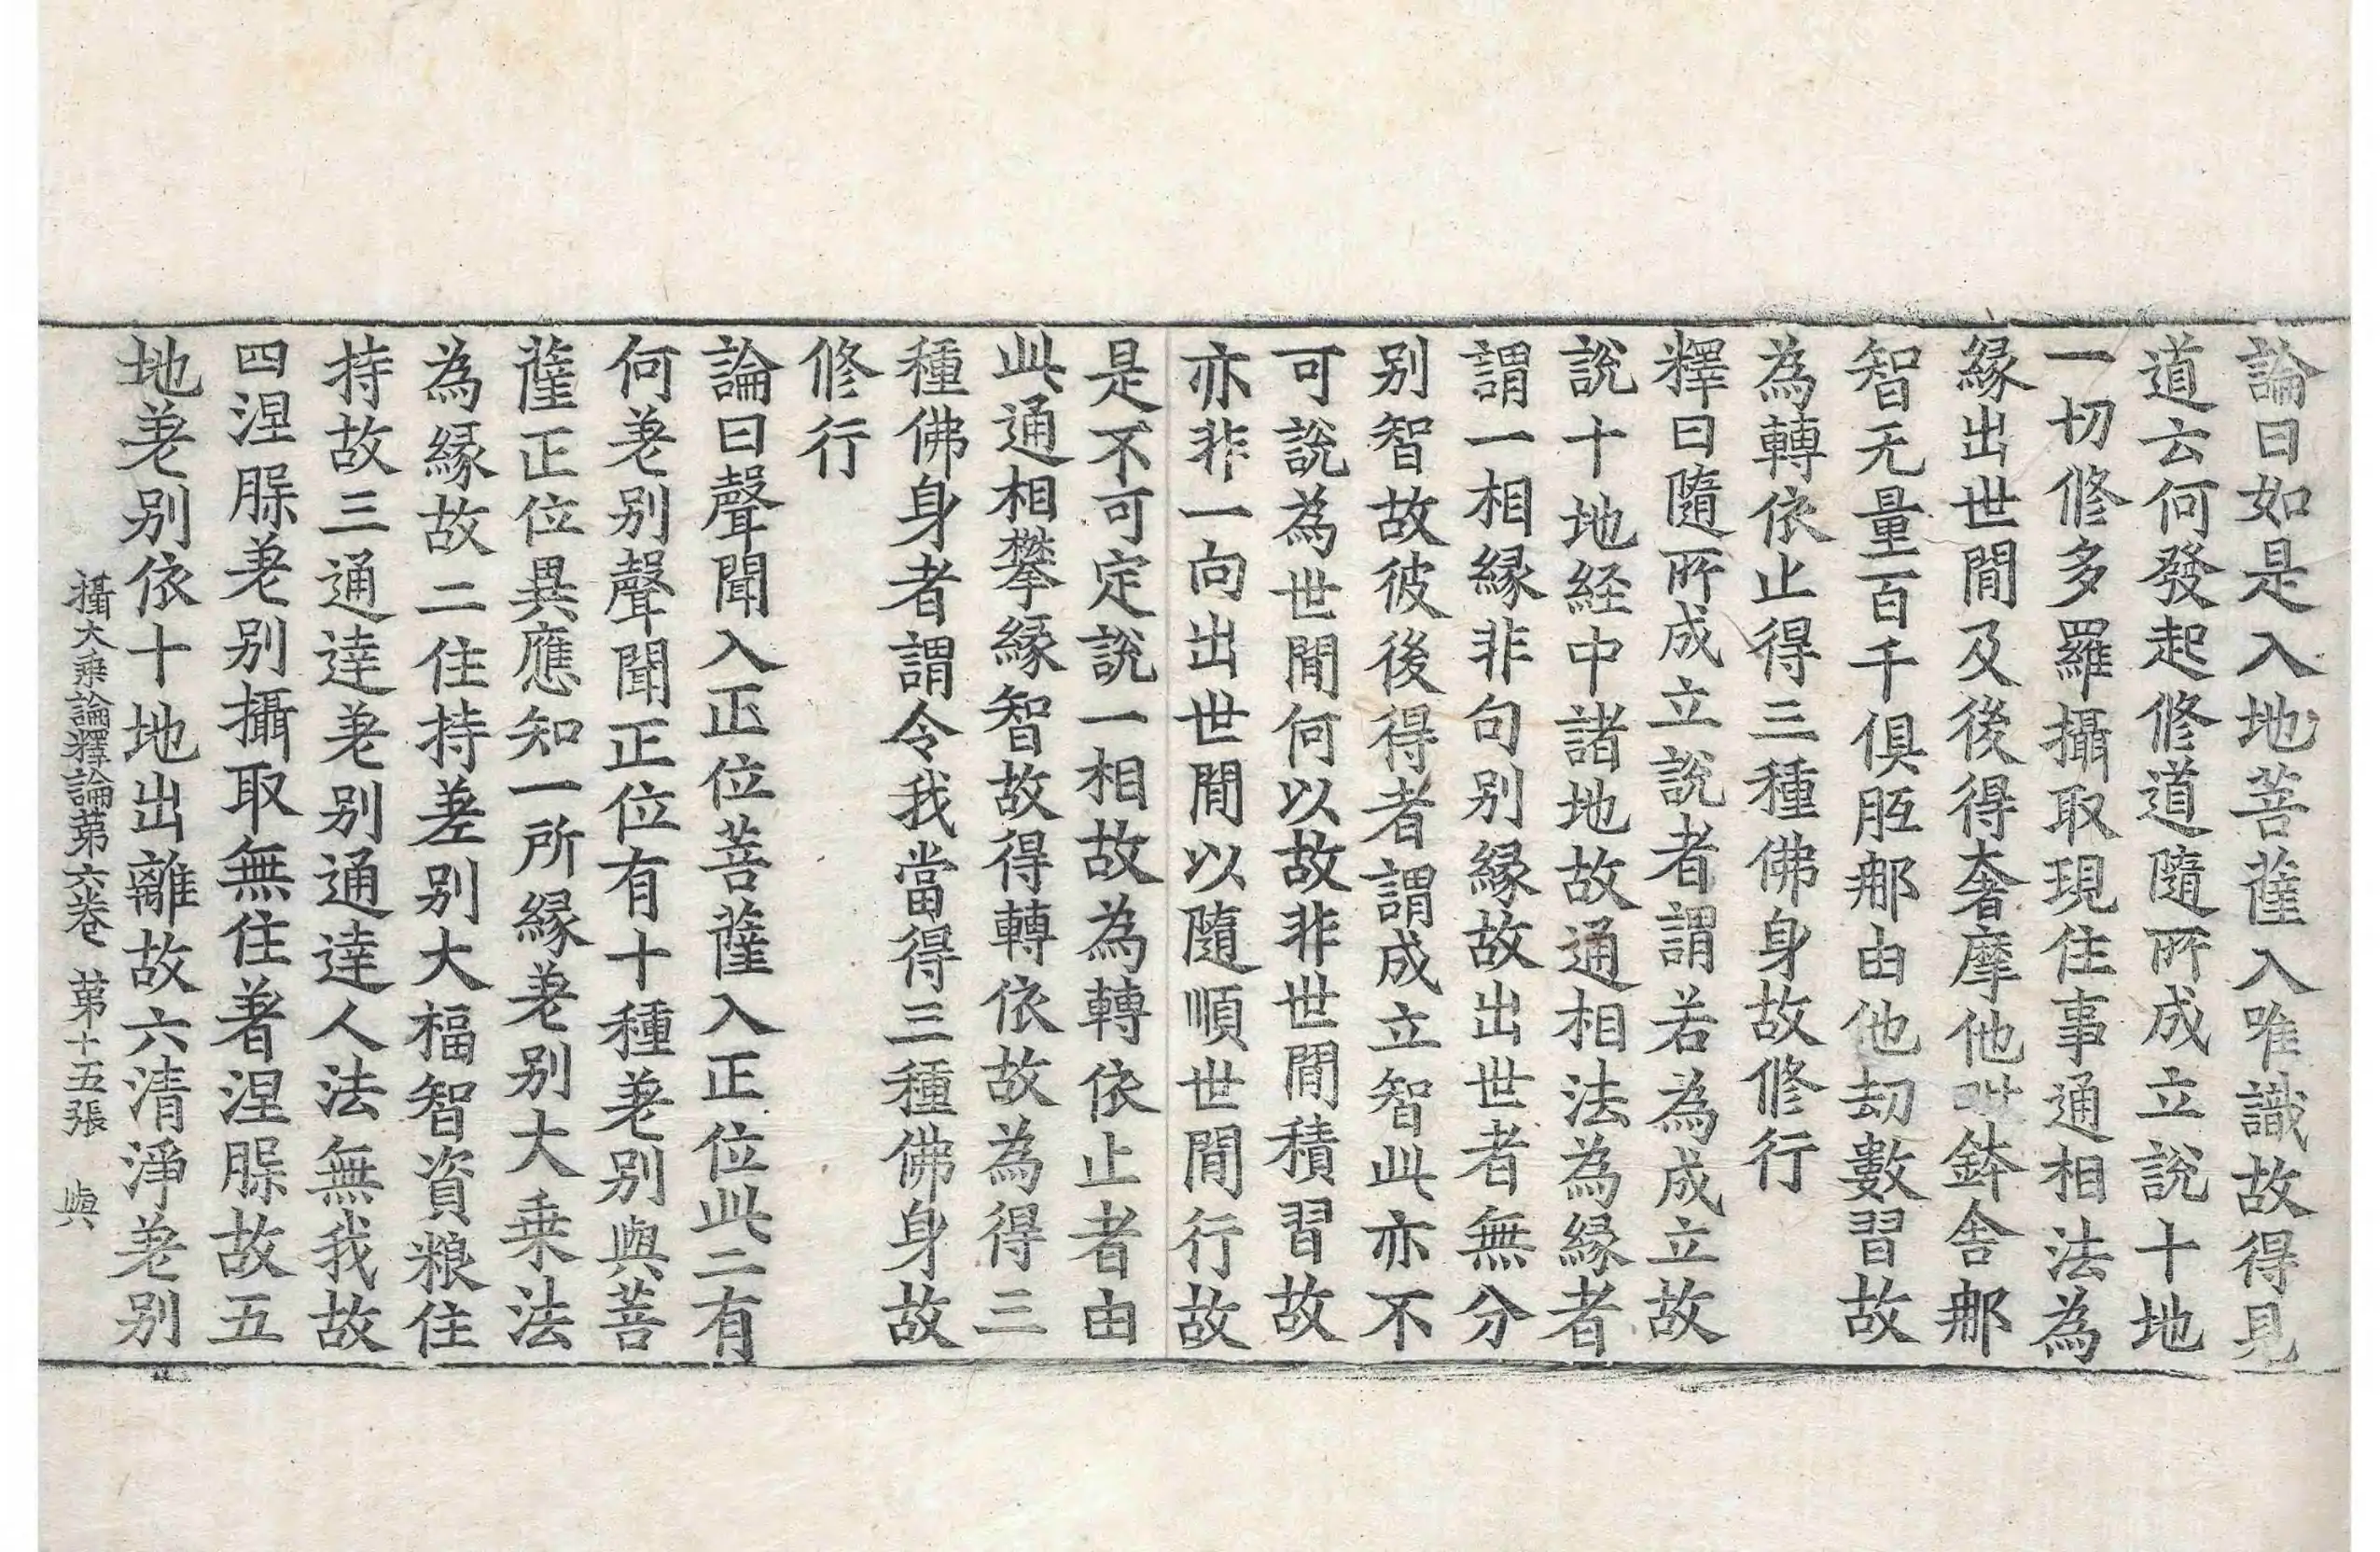 論曰如是入地菩薩入唯識故得見
道云何發起修道隨所成立說十地
一切修多羅攝取現住事通相法為
緣出世間及後得奢摩他毗鉢舍那
智无量百千俱胝那由他劫數習故
為轉依止得三種佛身故修行
釋曰隨所成立說者謂若為成立故
說十地経中諸地故通相法為緣者
謂一相緣非句别緣故出世者無分
别智故彼後後得者謂成立智此亦不
可說為世間何以故非世間積習故
亦非一向出世間以隨順世間行故
是不可定說一相故為轉依止者由
此通相攀緣智故得轉依故為得三
種佛身者謂令我當得三種佛身故
修行
論曰聲聞入正位菩薩入正位此二有
何差别聲聞正位有十種差别與菩
薩正位異應知一所緣差别大乗法
為緣故二住持差别大福智資粮住
持故三通達差别通達人法無我故
四涅槃差别攝取無住著涅槃故五
地差别依十地出離故六清淨差别
攝大乗論釋論第六卷 第十五張 與